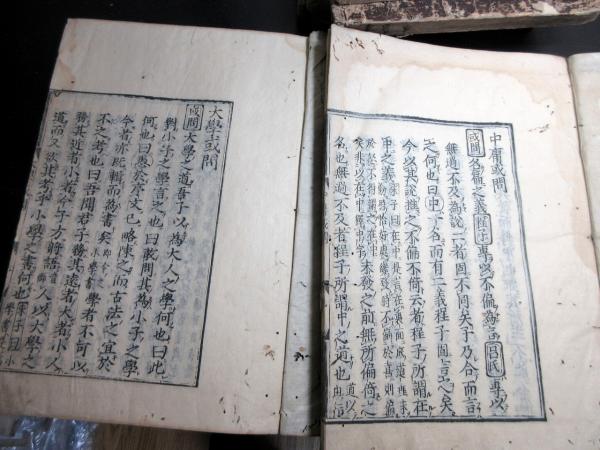 中庸或問
或問名篇之義程子專以不偏為言呂氏專以
無過不及為說二者固不同矣子乃合而言
之何也曰中一名而有二義程子固言之矣
今以其說推之不偏不倚云者程子所謂在
中之義
未發之前無所偏倚
之名也無過不及者程子所謂中之道也
大學或問
或問大學之道吾子以為大人之學何也曰此
對小子之學言之也曰敢問其為小子之學
何也曰愚於序文已略陳之而古法之宜於
今者亦既輯而為書矣
學者不可以
不之考也曰吾聞君子務其遠者大者小人
務其近者小者今子方將語人以大學之
道而又欲其考乎小學之書何也